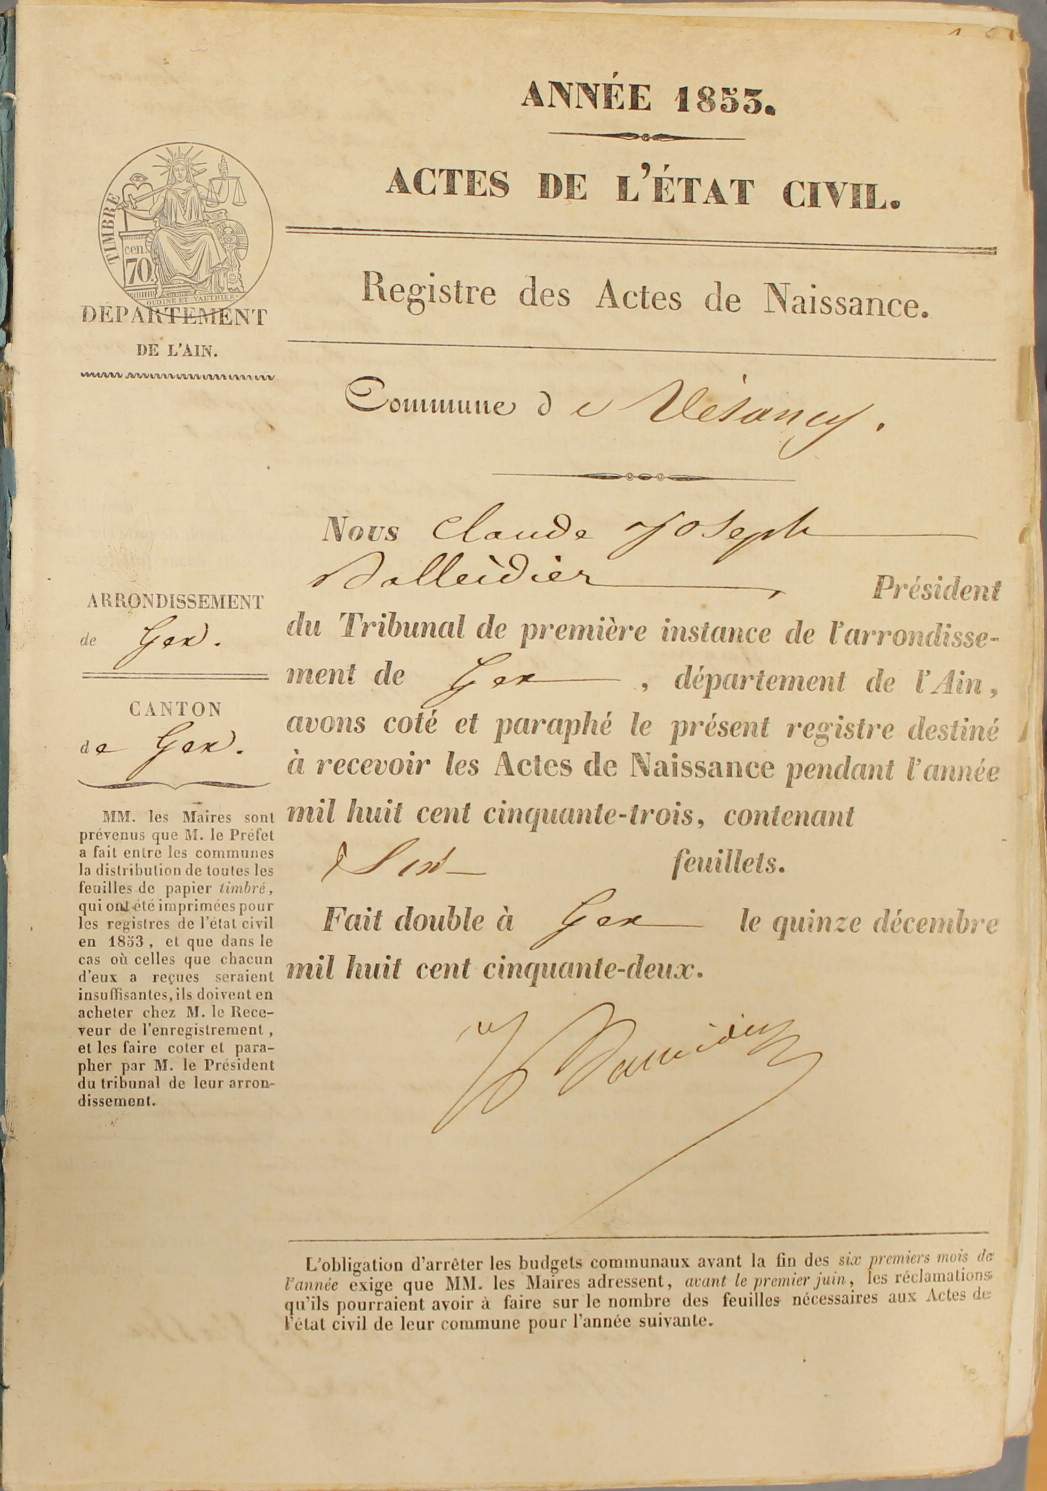 ANNÉE 1853.
ACTES DE L'ÉTAT CIVIL.
TIMBRE
cen.
70
OUDINÉ ET VAUTHIER
DÉPARTEMENT
DE L'AIN.
Registre des Actes de Naissance.
Commune de Vésancy.
Nous Claude Joseph
Balleidier, Président
du Tribunal de première instance de l'arrondisse-
ment de Gex, département de l'Ain,
avons coté et paraphé le présent registre destiné
à recevoir les Actes de Naissance pendant l'année
mil huit cent cinquante-trois, contenant
Six feuillets.
Fait double à Gex le quinze décembre
mil huit cent cinquante-deux.
ARRONDISSEMENT
de Gex.
CANTON
de Gex.
MM. les Maires sont
prévenus que M. le Préfet
a fait entre les communes
la distribution de toutes les
feuilles de papier timbré,
qui ont été imprimées pour
les registres de l'état civil
en 1853, et que dans le
cas où celles que chacun
d'eux a reçues seraient
insuffisantes, ils doivent en
acheter chez M. le Rece-
veur de l'enregistrement,
et les faire coter et para-
pher par M. le Président
du tribunal de leur arron-
dissement.
L'obligation d'arrêter les budgets communaux avant la fin des six premiers mois de
l'année exige que MM. les Maires adressent, avant le premier juin, les réclamations
qu'ils pourraient avoir à faire sur le nombre des feuilles nécessaires aux Actes de
l'état civil de leur commune pour l'année suivante.